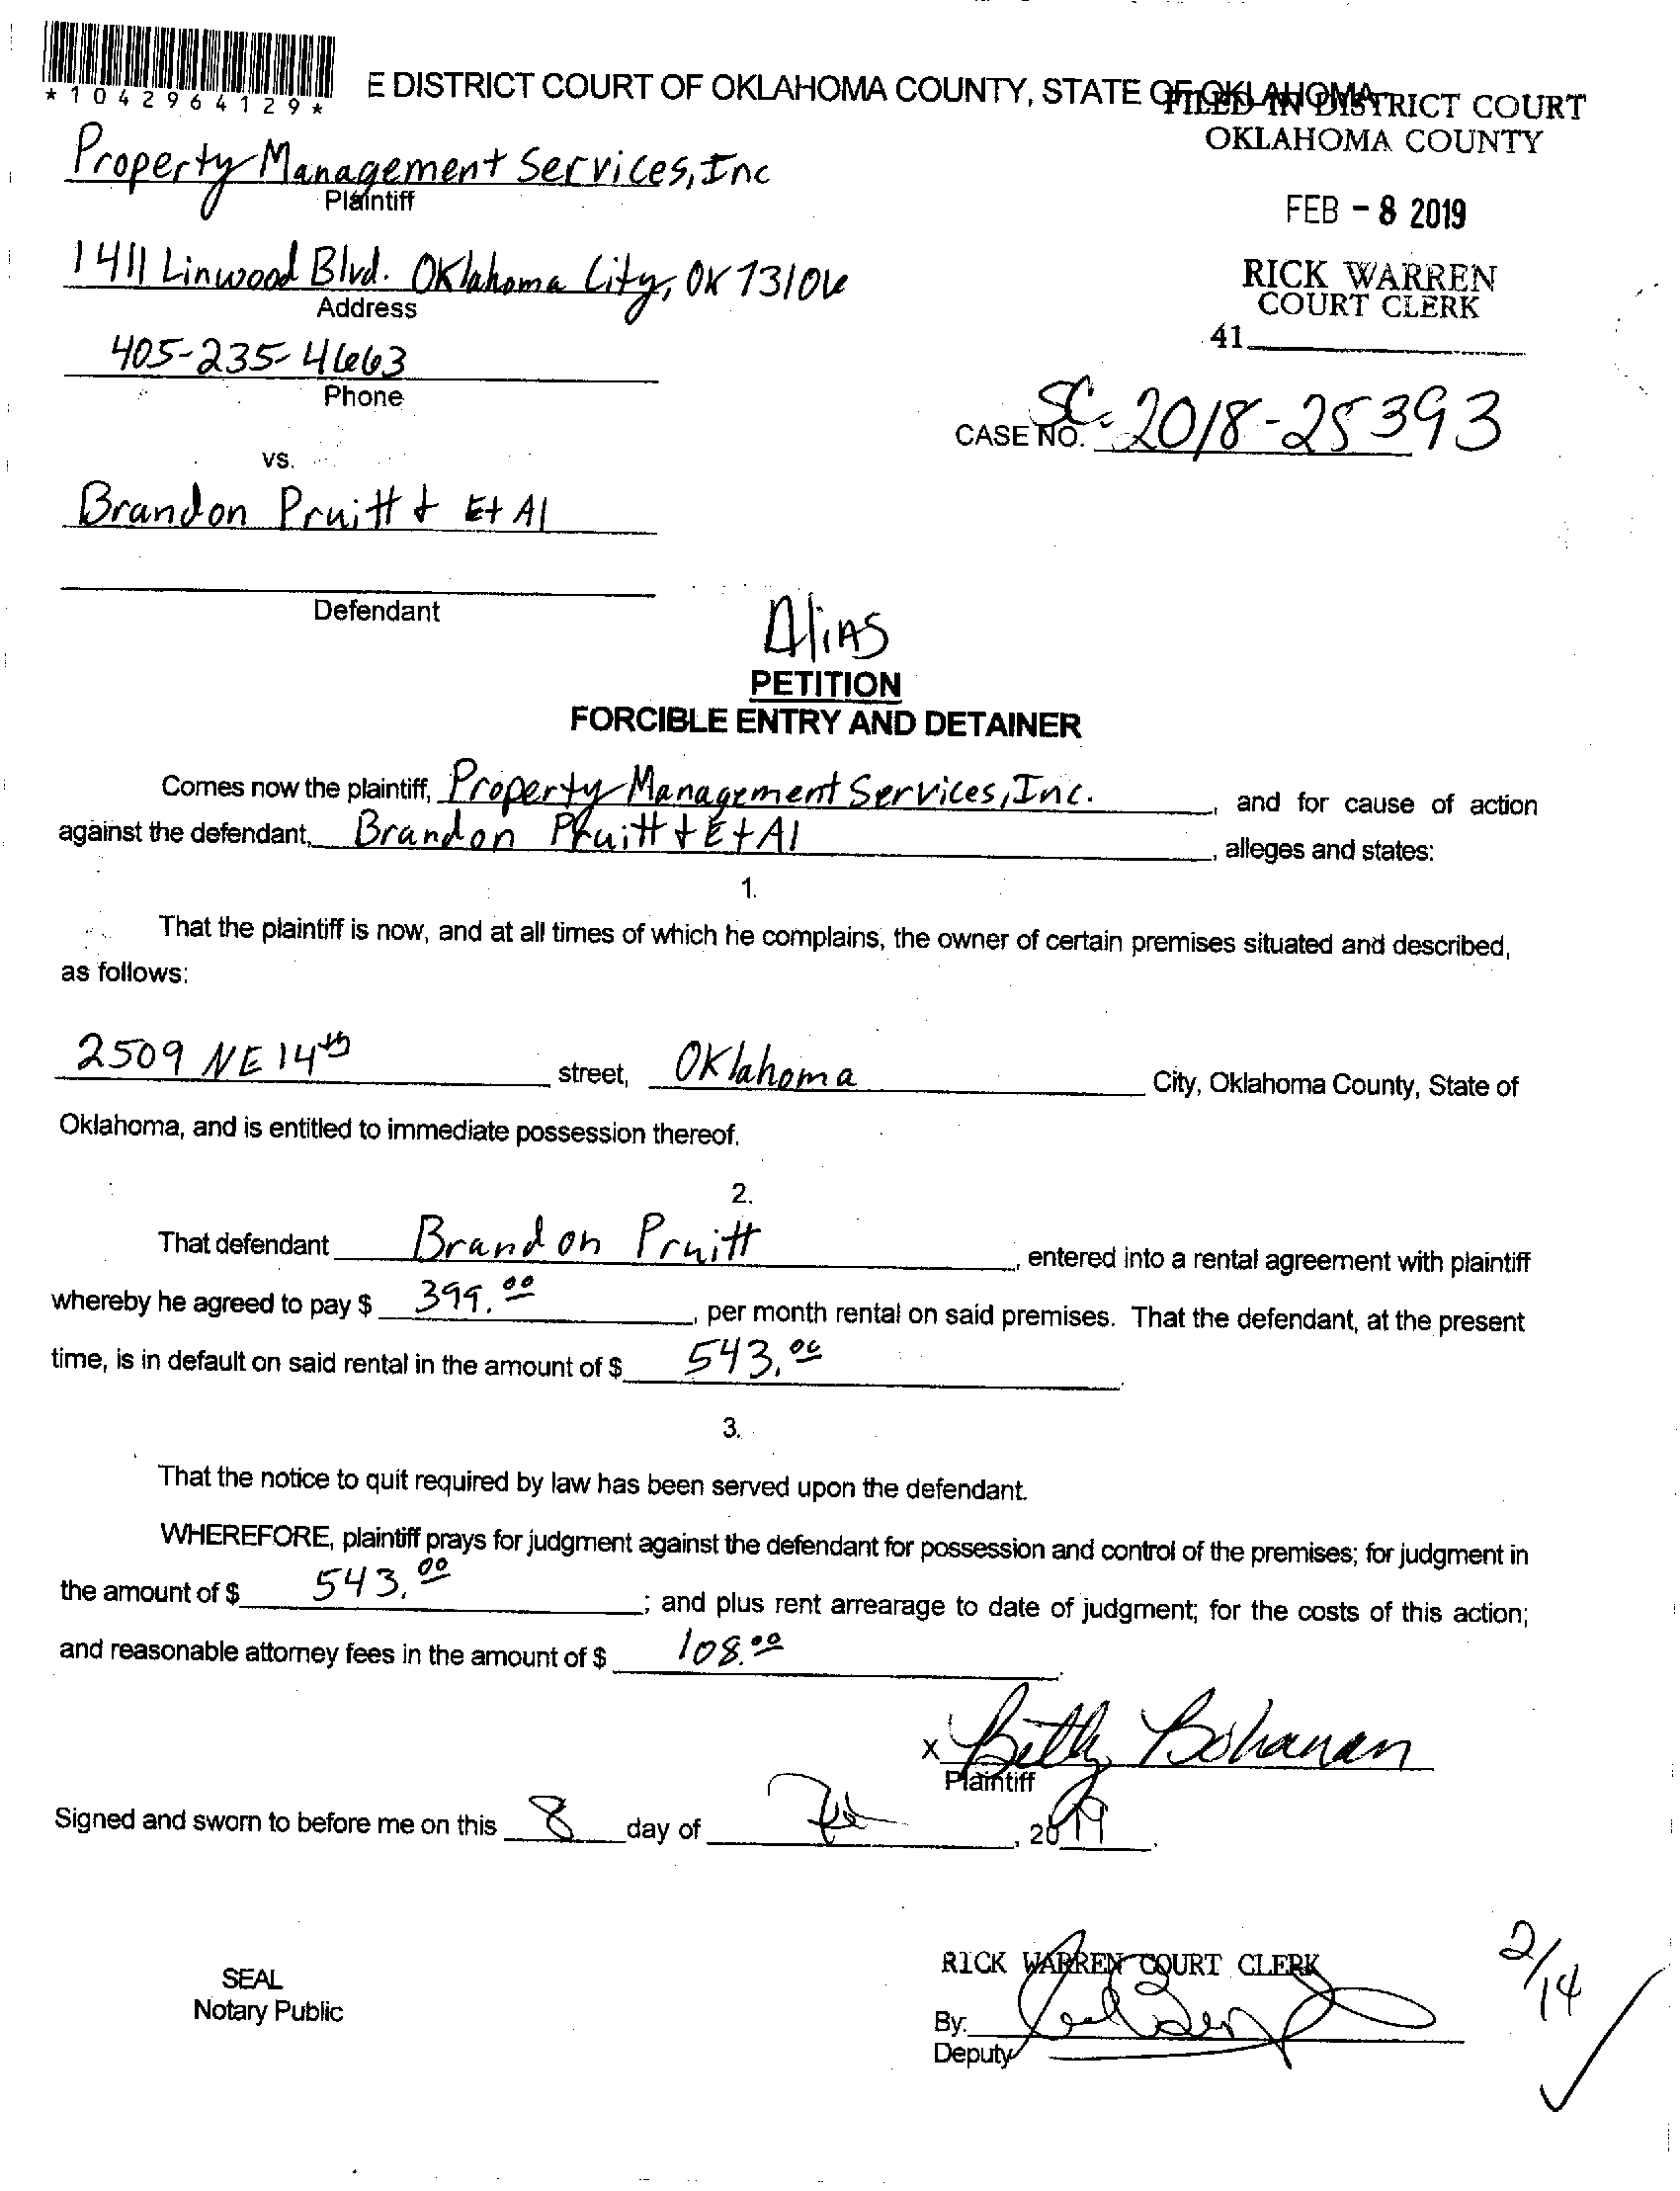 *1042964129*
E DISTRICT COURT OF OKLAHOMA COUNTY, STATE OF OKLAHOMA
FILED IN DISTRICT COURT
OKLAHOMA COUNTY
Property Management Services, Inc
Plaintiff
FEB - 8 2019
1411 Linwood Blvd. Oklahoma City, OK 73106
Address
RICK WARREN
COURT CLERK
41
405-235-4663
Phone
CASE NO. SC-2018-25393
vs.
Brandon Pruitt + Et Al
Defendant
Alias
PETITION
FORCIBLE ENTRY AND DETAINER
Comes now the plaintiff, Property Management Services, Inc. , and for cause of action
against the defendant, Brandon Pruitt + Et Al , alleges and states:
1.
That the plaintiff is now, and at all times of which he complains, the owner of certain premises situated and described,
as follows:
2509 NE 14th street, Oklahoma City, Oklahoma County, State of
Oklahoma, and is entitled to immediate possession thereof.
2.
That defendant Brandon Pruitt , entered into a rental agreement with plaintiff
whereby he agreed to pay $ 399.00 , per month rental on said premises. That the defendant, at the present
time, is in default on said rental in the amount of $ 543.00 .
3.
That the notice to quit required by law has been served upon the defendant.
WHEREFORE, plaintiff prays for judgment against the defendant for possession and control of the premises; for judgment in
the amount of $ 543.00 ; and plus rent arrearage to date of judgment; for the costs of this action;
and reasonable attorney fees in the amount of $ 108.00 .
x Betty Bohanan
Plaintiff
Signed and sworn to before me on this 8 day of Feb , 2019 .
RICK WARREN COURT CLERK
2/14
SEAL
Notary Public
By:
Deputy